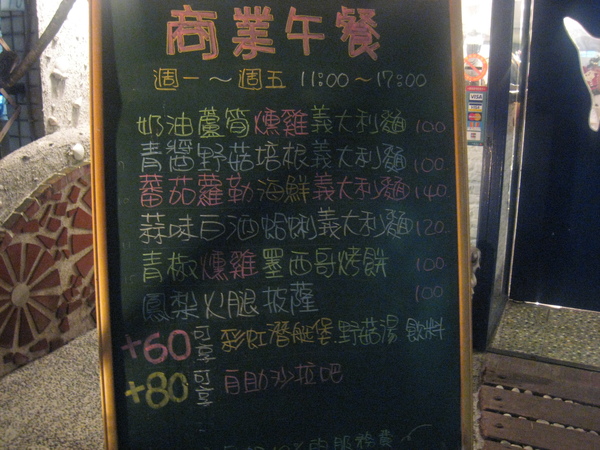 商業午餐
週一～週五 11:00～17:00
奶油蘆筍燻雞義大利麵 100
青醬野菇培根義大利麵 100
蕃茄蘿勒海鮮義大利麵 140
蒜味白酒蛤蜊義大利麵 120
青椒燻雞墨西哥烤餅 100
鳳梨火腿披薩 100
+60 可享 彩虹潛艇堡.野菇湯 飲料
+80 可享 自助沙拉吧
服務費
VISA